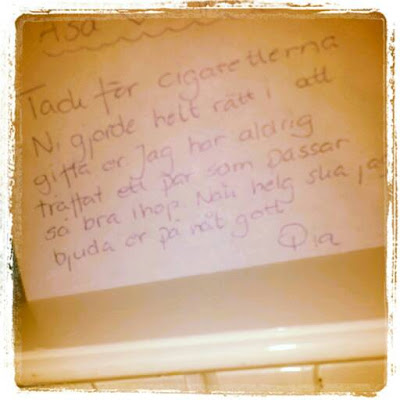 Åsa
Tack för cigaretterna
Ni gjorde helt rätt i att
gifta er. Jag har aldrig
träffat ett par som passar
så bra ihop. Näs helg ska jag
bjuda er på nåt gott
Pia